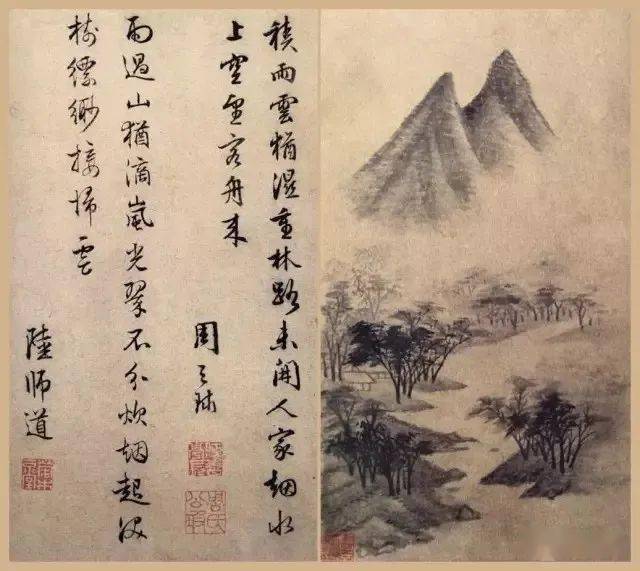 積雨雲猶濕重林路未開人家烟水
上空望客舟来
周天球
周氏公瑕
雨過山猶滴嵐光翠不分炊烟起深
樹縹緲接歸雲
陸師道